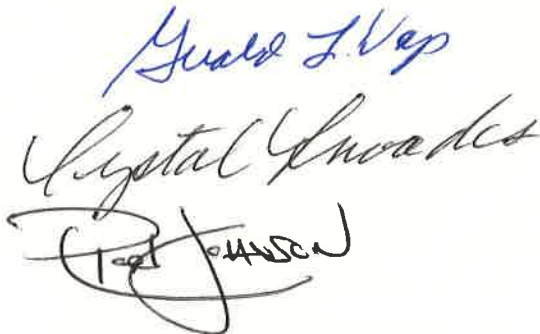 Gerald L. Vap
Crystal Rhoades
Rod Johnson